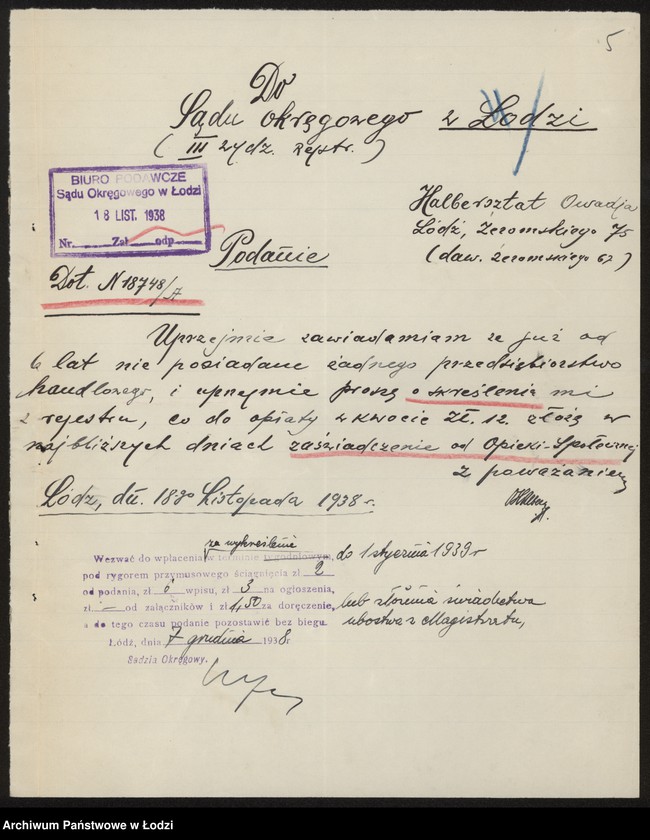 5
Do
Sądu Okręgowego w Łodzi
( III wydz. rejstr. )
BIURO PODAWCZE
Sądu Okręgowego w Łodzi
18 LIST. 1938
Nr. Zał odp
Halbersztat Owadja
Łódź, Żeromskiego 75
(daw. Żeromskiego 67)
Podanie
Dot. N 18748/A
Uprzejmie zawiadamiam że już od
6 lat nie posiadam żadnego przedsiębiorstwo
handlowego, i uprzejmie proszę o skreślenie mi
z rejestru, co do opłaty w kwocie Zł. 12. złożę w
najbliższych dniach zaświadczenie od Opieki-Społecznej
z poważaniem
Łódź, dn. 18go Listopada 1938 r.
za wykreślenie
Wezwać do wpłacenia w terminie tygodniowym, do 1 stycznia 1939 r
pod rygorem przymusowego ściągnięcia zł 2
od podania, zł 6 wpisu, zł 3 na ogłoszenia,
zł - od załączników i zł 4,50 za doręczenie, lub złożenia świadectwa
a do tego czasu podanie pozostawić bez biegu. ubóstwa z Magistratu,
Łódź, dnia 7 grudnia 1938 r
Sędzia Okręgowy.
Archiwum Państwowe w Łodzi